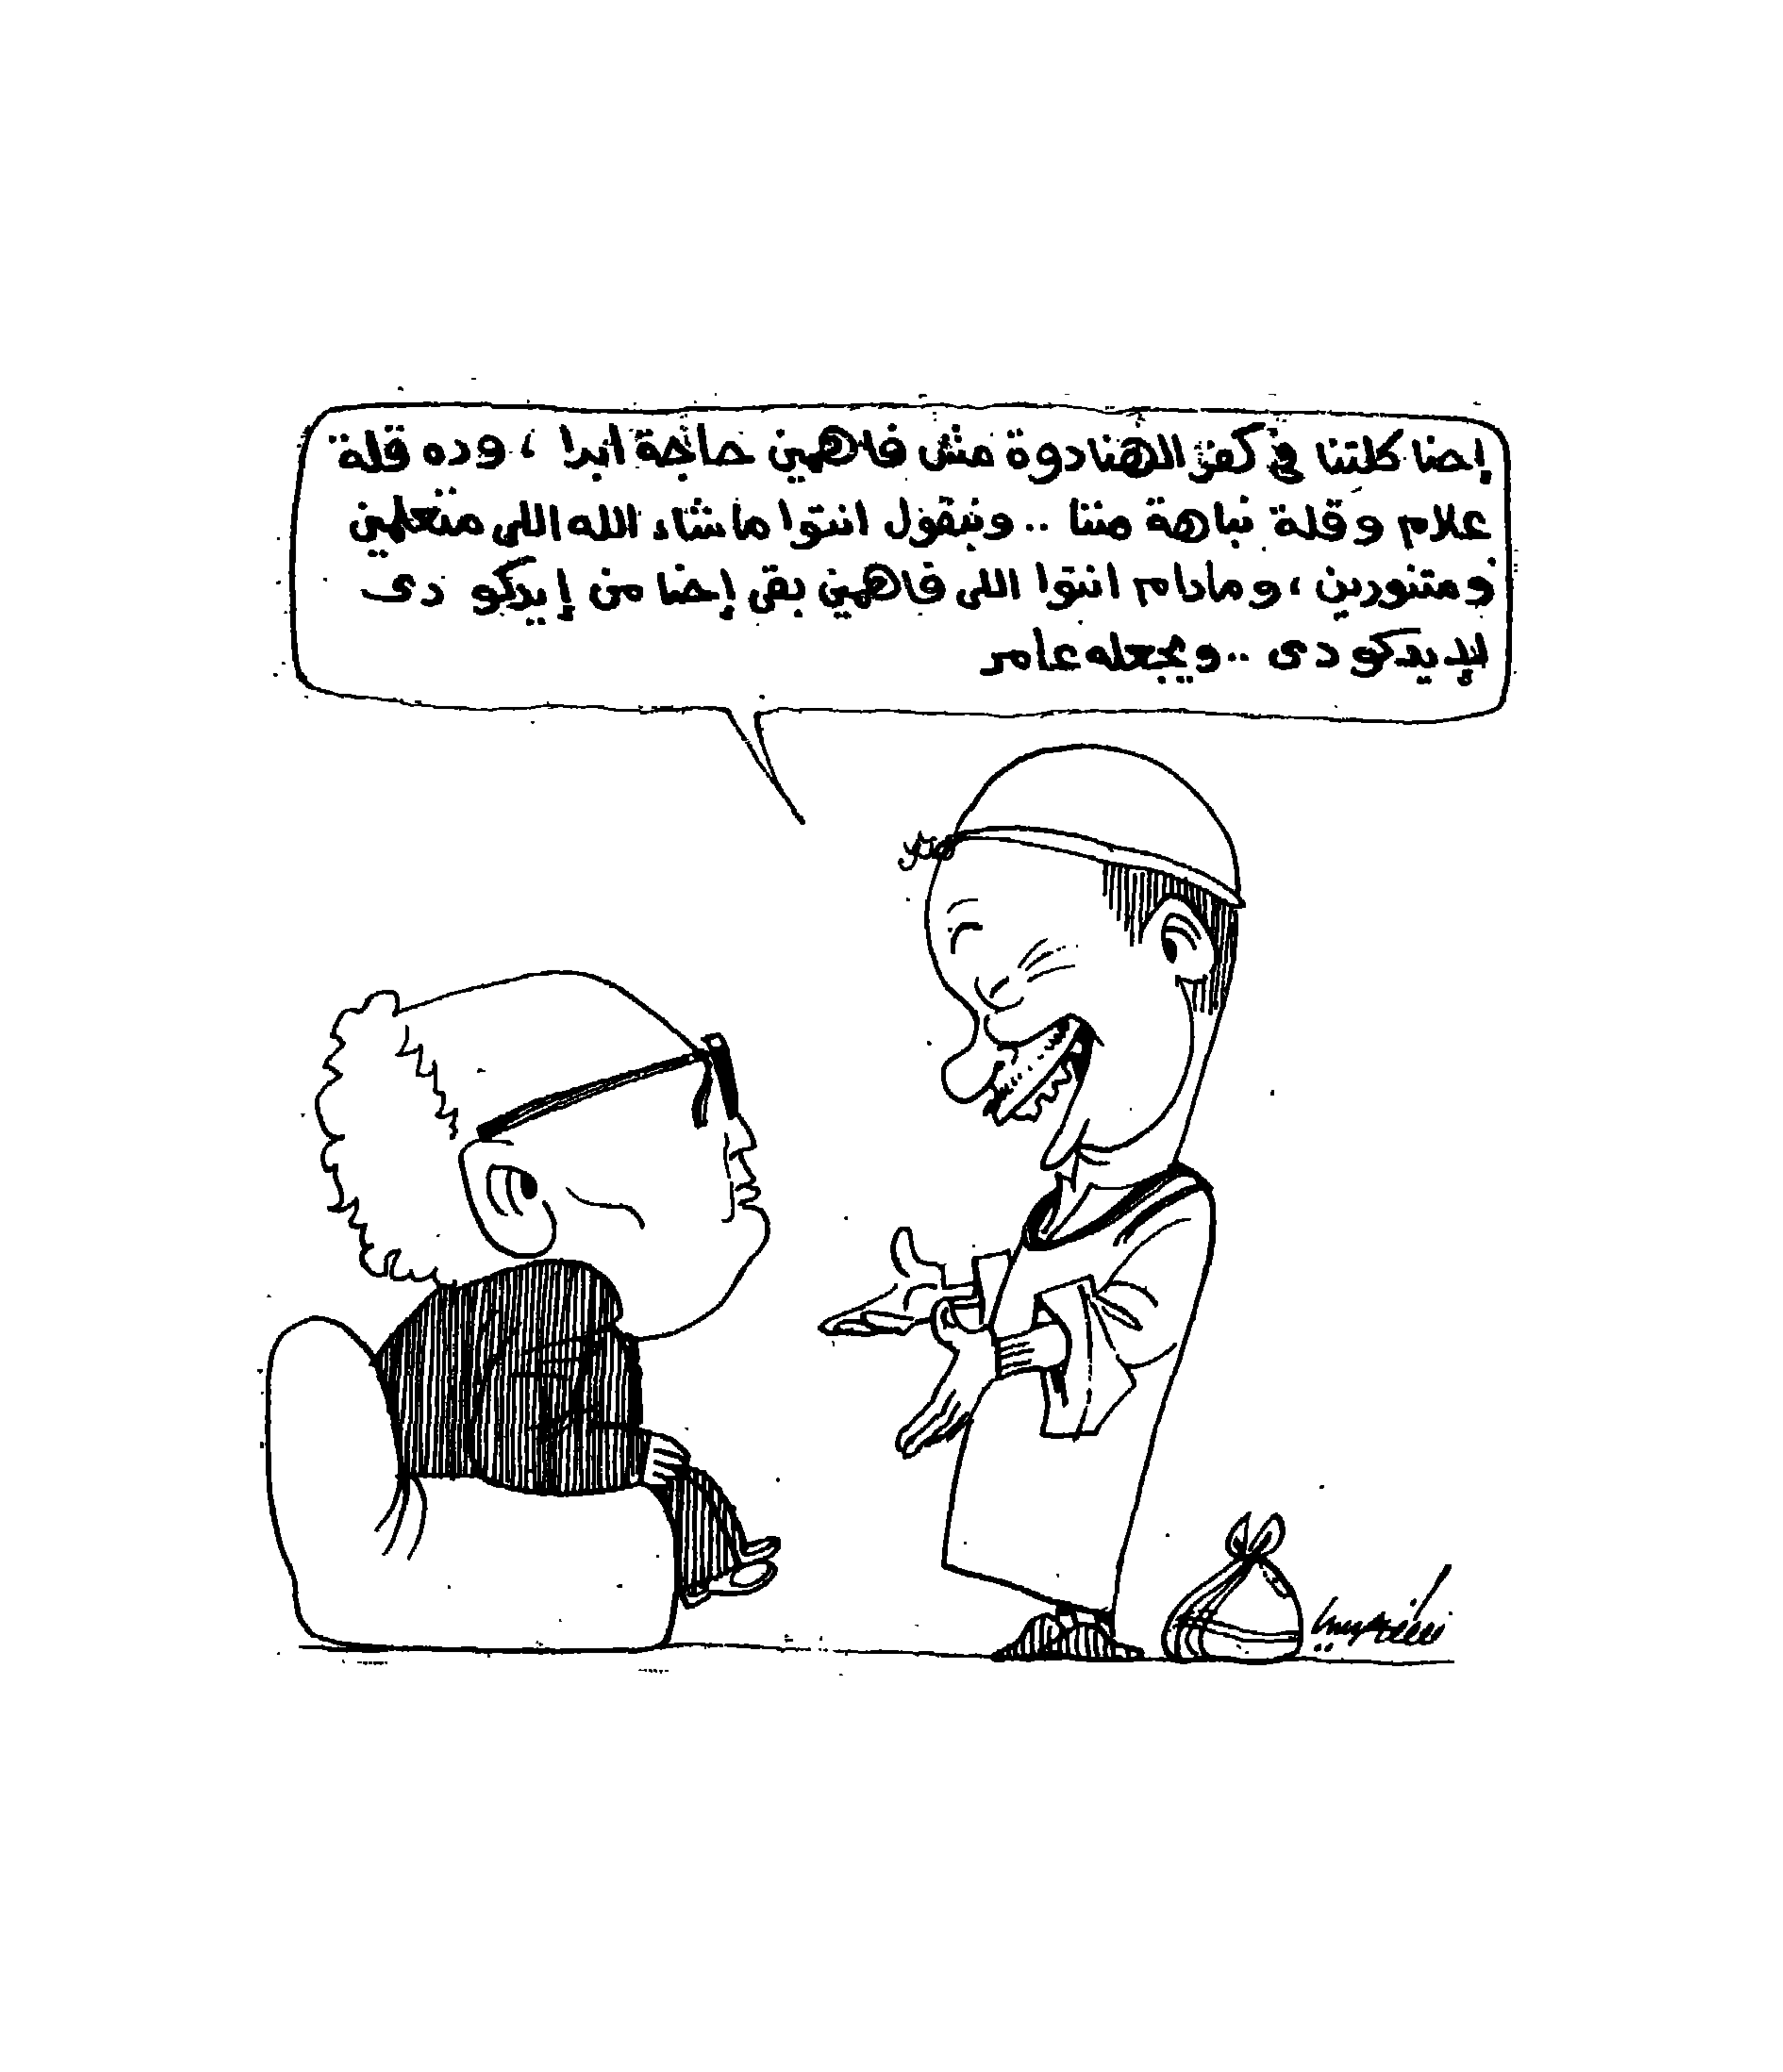 إحنا كلتنا في كفر الهنادوة مش فاهمين حاجة أبدا ، وده قلة
علام وقلة نباهة مننا .. وبنقول انتوا ماشاء الله اللى متعلمين
ومتنورين ، ومادام انتوا اللى فاهمين بقى إحنا من إيدكو دى
لإيديكو دى .. ويجعله عامر